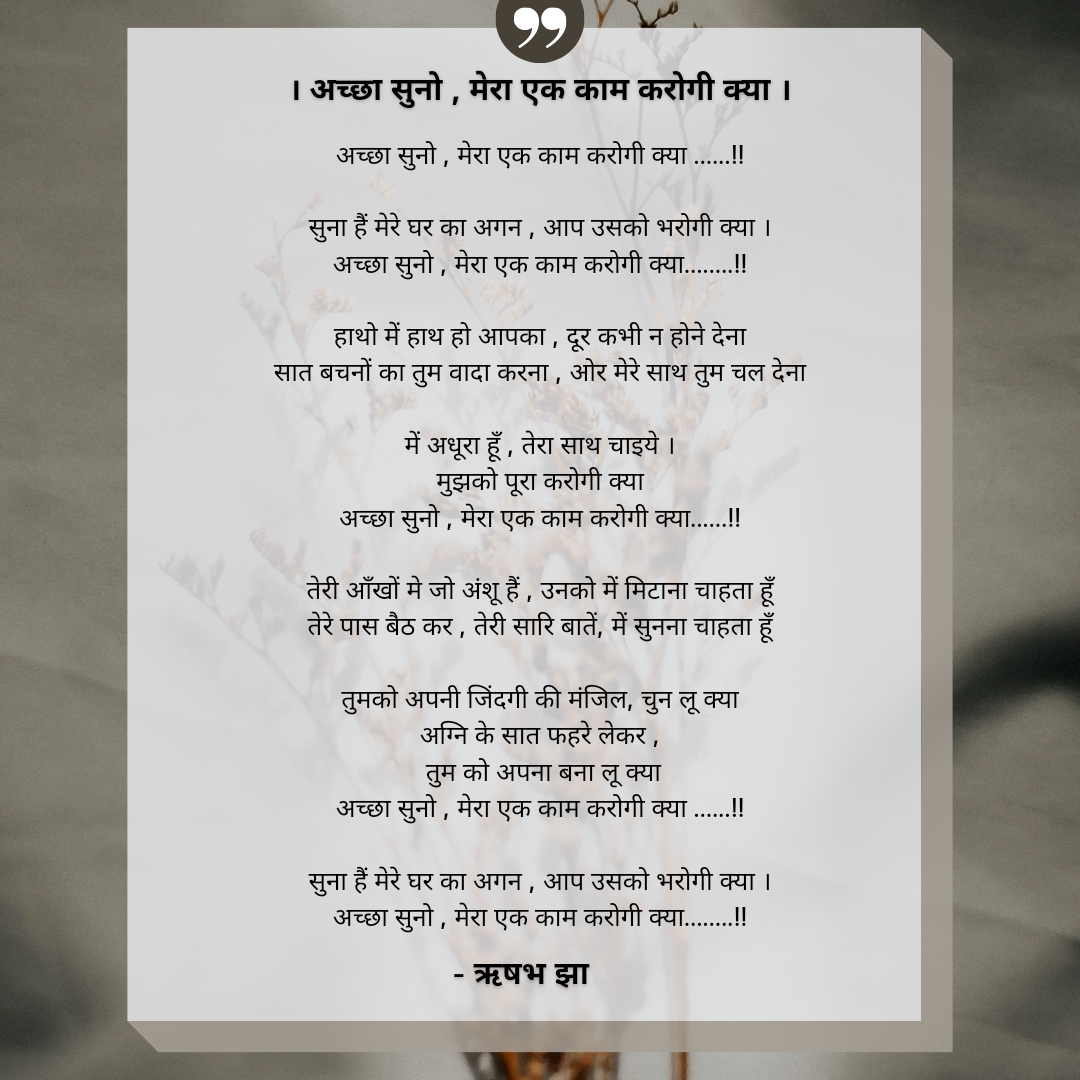 । अच्छा सुनो , मेरा एक काम करोगी क्या ।
अच्छा सुनो , मेरा एक काम करोगी क्या ......!!
सुना हैं मेरे घर का अगन , आप उसको भरोगी क्या ।
अच्छा सुनो , मेरा एक काम करोगी क्या........!!
हाथो में हाथ हो आपका , दूर कभी न होने देना
सात बचनों का तुम वादा करना , ओर मेरे साथ तुम चल देना
में अधूरा हूँ , तेरा साथ चाइये ।
मुझको पूरा करोगी क्या
अच्छा सुनो , मेरा एक काम करोगी क्या......!!
तेरी आँखों मे जो अंशू हैं , उनको में मिटाना चाहता हूँ
तेरे पास बैठ कर , तेरी सारि बातें, में सुनना चाहता हूँ
तुमको अपनी जिंदगी की मंजिल, चुन लू क्या
अग्नि के सात फहरे लेकर ,
तुम को अपना बना लू क्या
अच्छा सुनो , मेरा एक काम करोगी क्या ......!!
सुना हैं मेरे घर का अगन , आप उसको भरोगी क्या ।
अच्छा सुनो , मेरा एक काम करोगी क्या........!!
- ऋषभ झा